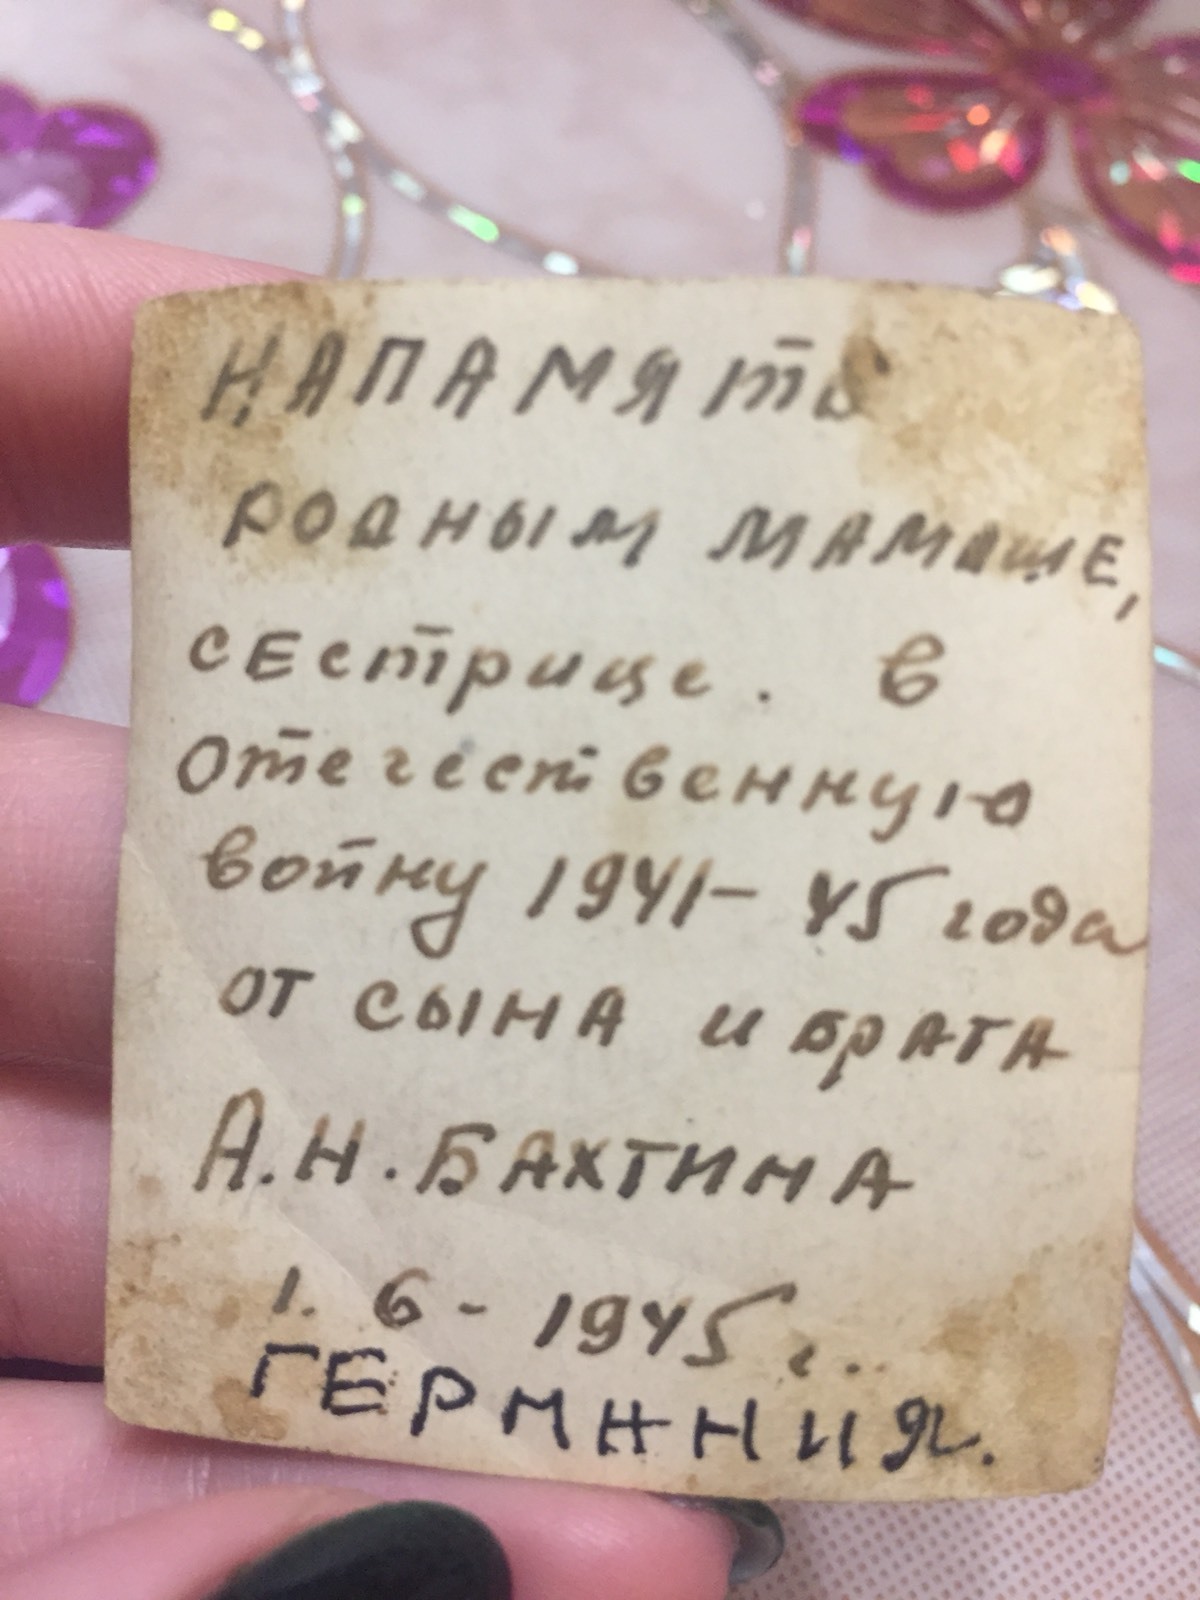 НАПАМЯть
РОДНЫМ МАМАШЕ,
СЕстрице. в
Отечественную
войну 1941-45 года
ОТ СЫНА и БРАТА
А.Н. БАХТИНА
1. 6 - 1945 г..
ГЕРМАНИЯ.